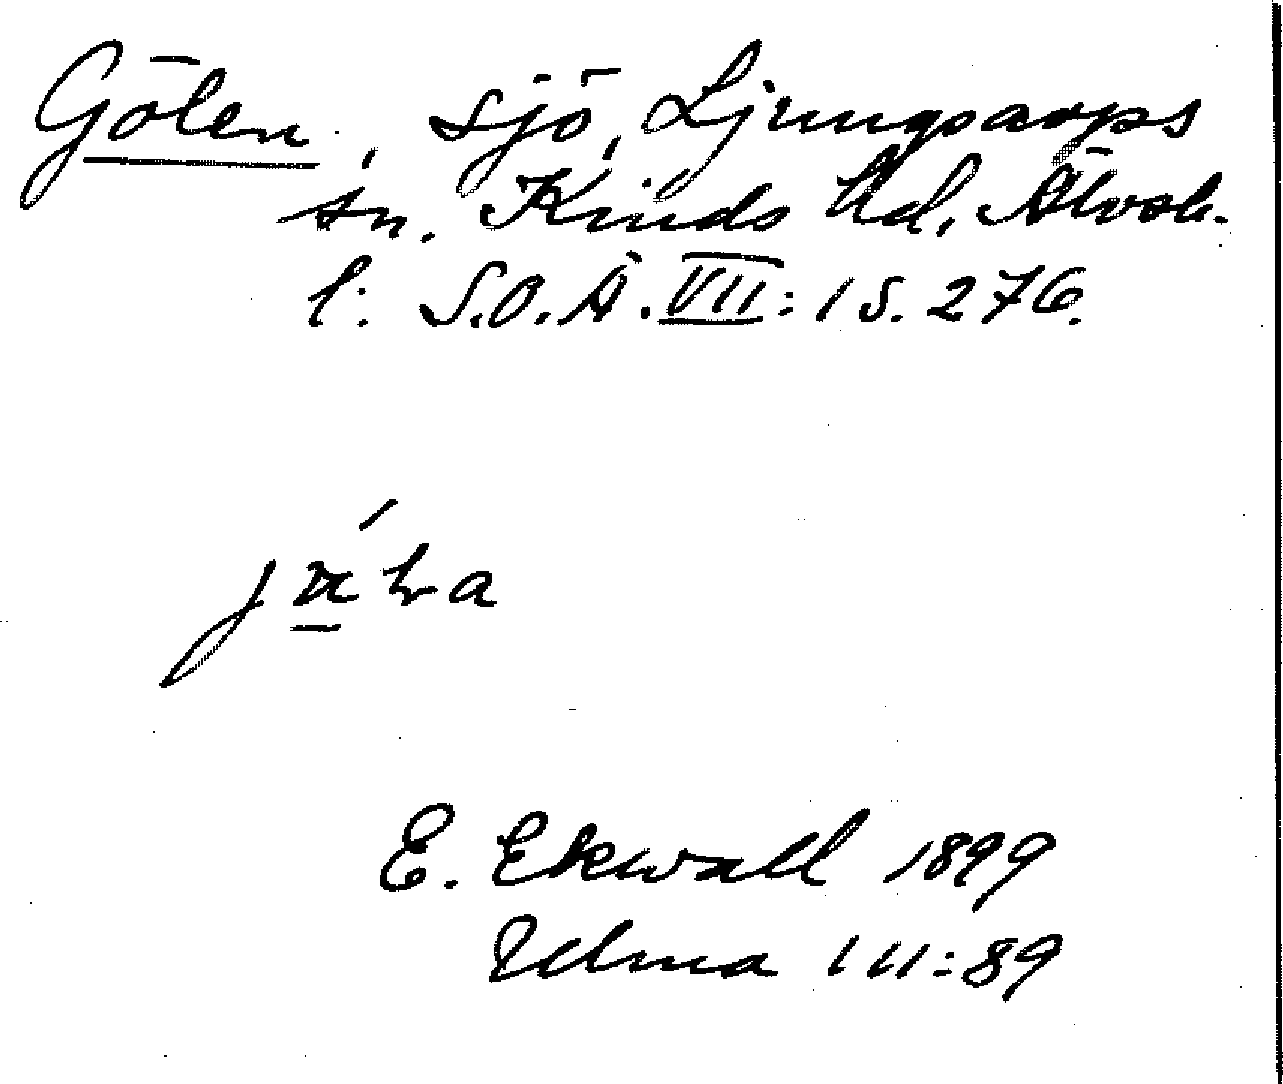 Gölen, sjö, Ljungsarps
sn. Kinds hd, Älvsb.
l: S.O.Ä. VII: 1 S. 276.
E. Ekwall 1899
Ulma 111:89